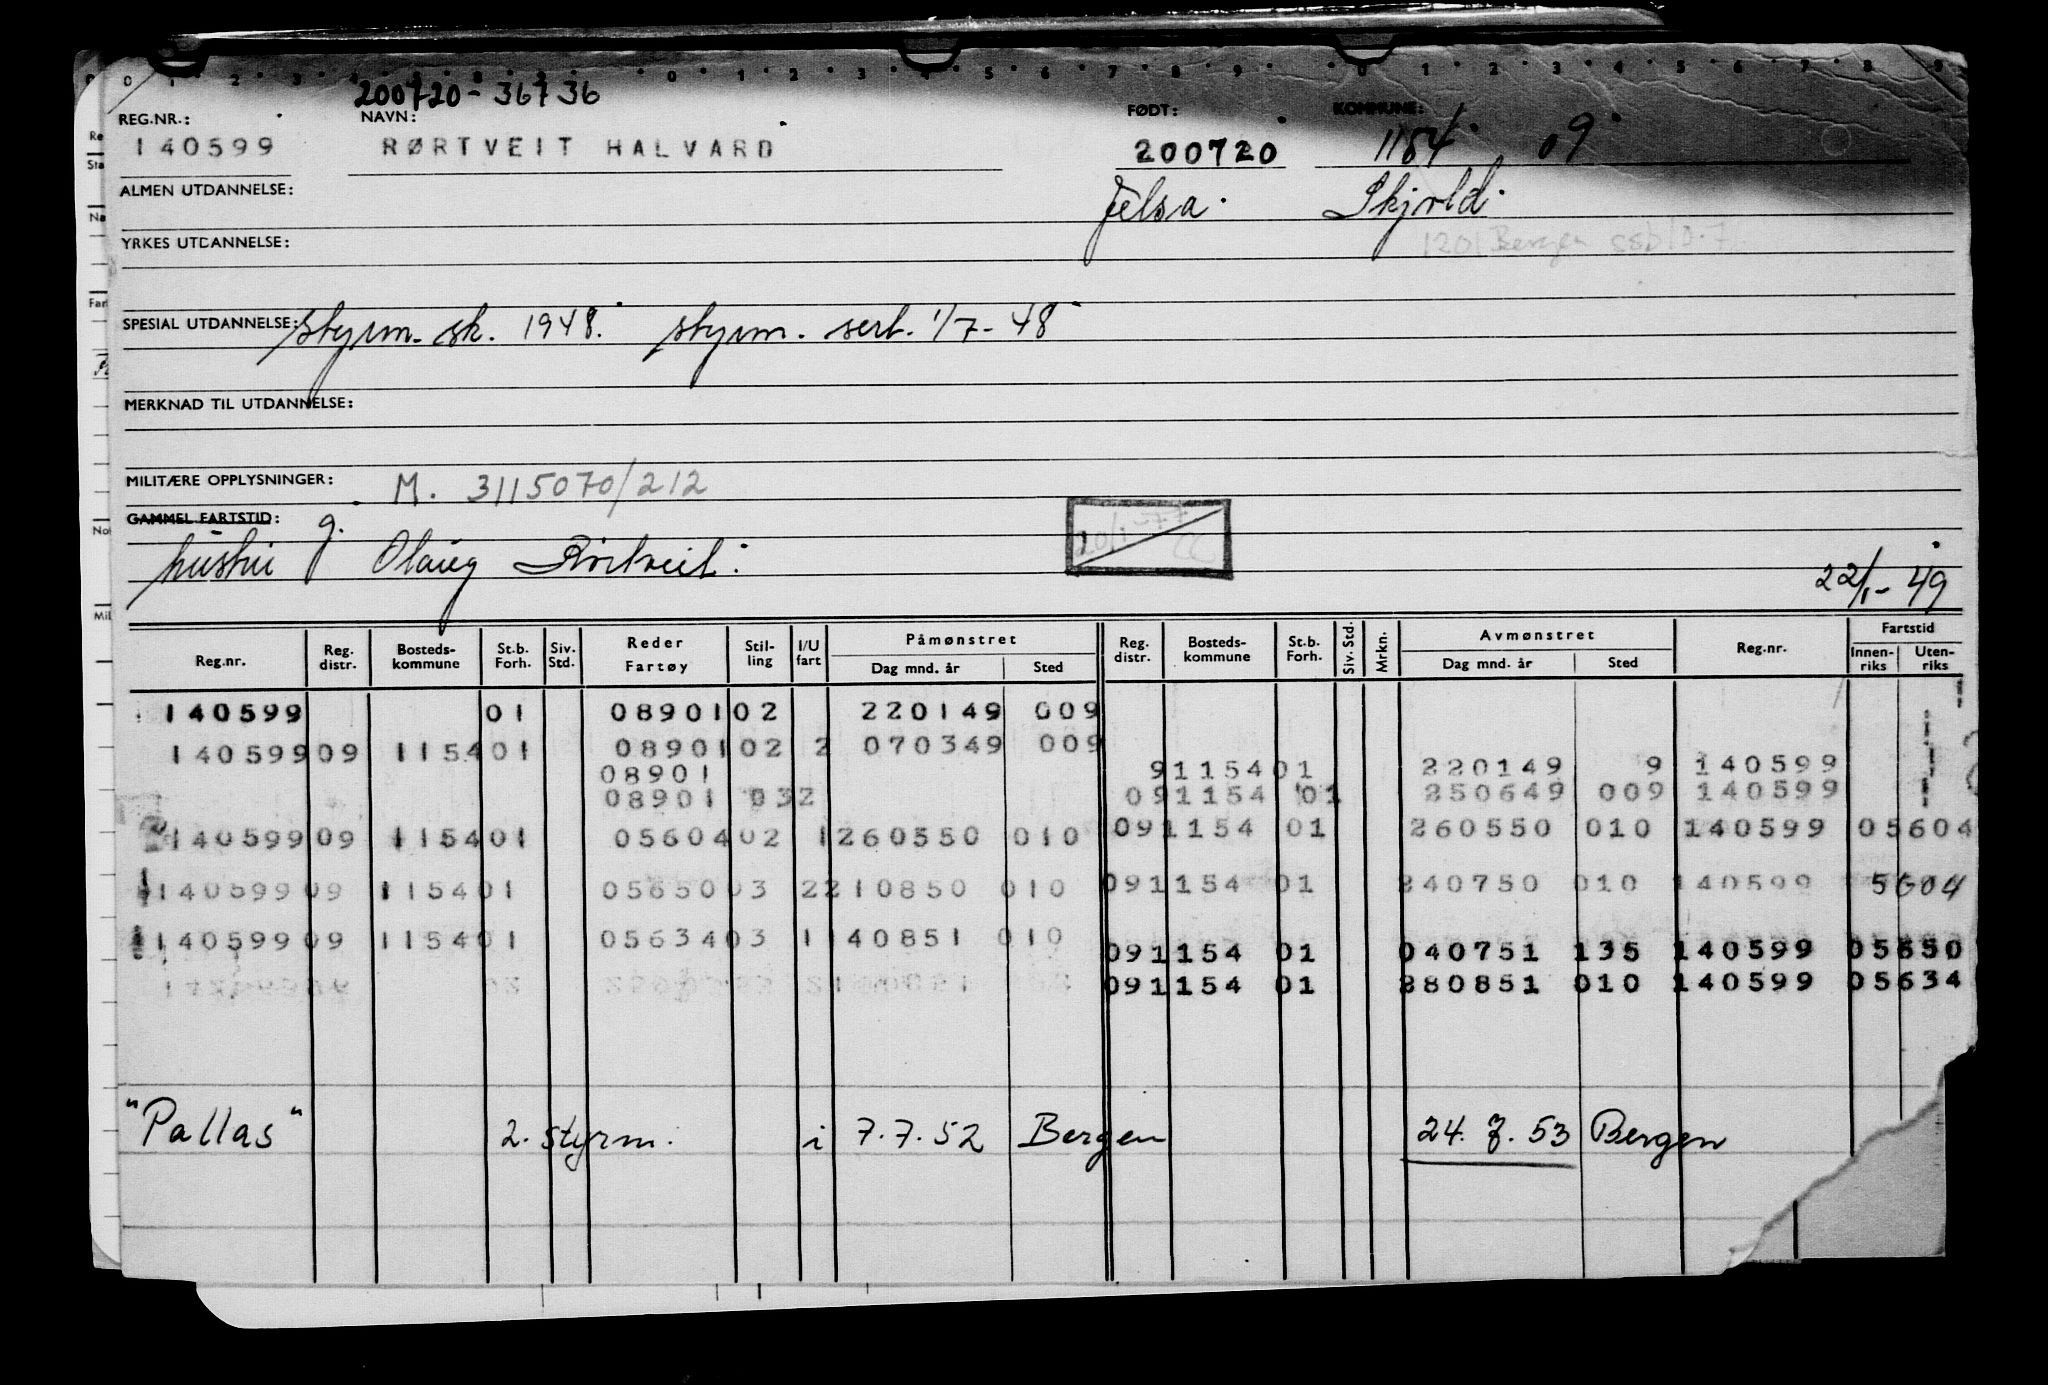 200720-36736
REG.NR.: NAVN: FØDT: KOMMUNE:
140599 RØRTVEIT HALVARD 200720 1154 09
ALMEN UTDANNELSE: Jelsa. Skjold.
YRKES UTDANNELSE: 1201 Bergen
SPESIAL UTDANNELSE: Styrm. sk. 1948. styrm. sert. 1/7-48
MERKNAD TIL UTDANNELSE:
MILITÆRE OPPLYSNINGER: M. 3115070/212
GAMMEL FARTSTID: g.
hustru Olaug Rörtveit.
22/1-49
Reg.nr. Reg. distr. Bosteds-kommune St.b. Forh. Siv. Std. Reder Fartøy Stil-ling I/U fart Påmønstret Dag mnd. år Sted Reg. distr. Bosteds-kommune St.b. Forh. Siv. Std. Mrkn. Avmønstret Dag mnd. år Sted Reg.nr. Fartstid Innen-riks Uten-riks
140599 01 08901 02 220149 009
140599 09 1154 01 08901 02 2 070349 009
08901 9 1154 01 220149 9 140599
08901 032 09 1154 01 250649 009 140599
140599 09 1154 01 05604 02 1 260550 010 09 1154 01 260550 010 140599 05604
140599 09 1154 01 05650 03 2 210850 010 09 1154 01 240750 010 140599 5604
140599 09 1154 01 05634 03 1 140851 010 09 1154 01 040751 135 140599 05650
09 1154 01 280851 010 140599 05634
"Pallas" 2. styrm. i 7.7.52 Bergen 24.7.53 Bergen